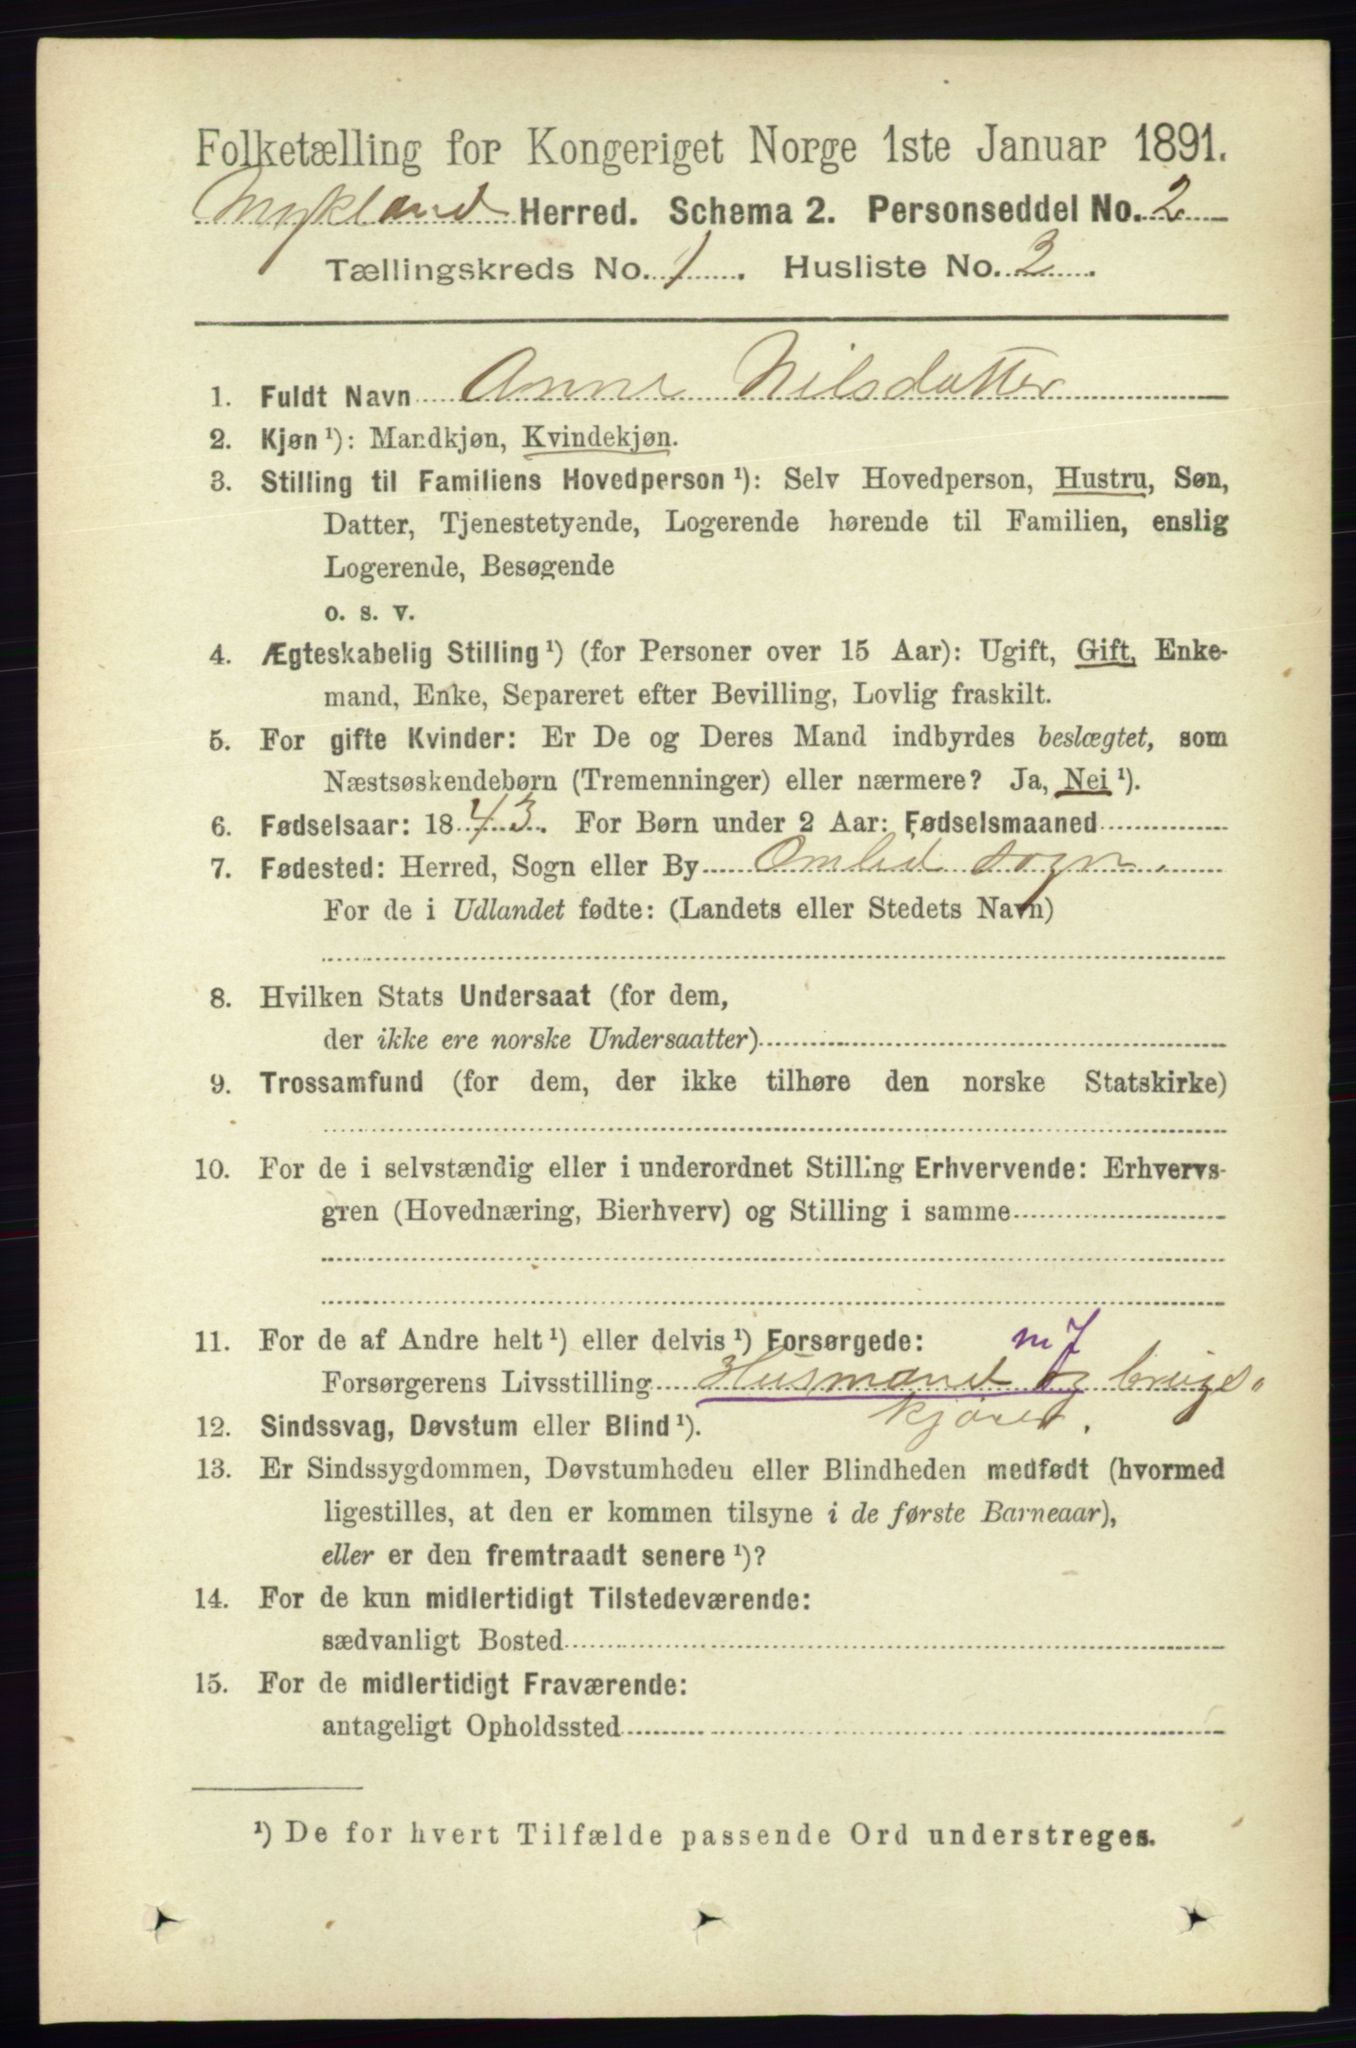 Folketælling for Kongeriget Norge 1ste Januar 1891.
Mykland Herred. Schema 2. Personseddel No. 2
Tællingskreds No. 1. Husliste No. 3.
1. Fuldt Navn Anne Nilsdatter
2. Kjøn ¹): Mandkjøn, Kvindekjøn.
3. Stilling til Familiens Hovedperson ¹): Selv Hovedperson, Hustru, Søn,
Datter, Tjenestetyende, Logerende hørende til Familien, enslig
Logerende, Besøgende
o. s. v.
4. Ægteskabelig Stilling ¹) (for Personer over 15 Aar): Ugift, Gift, Enke-
mand, Enke, Separeret efter Bevilling, Lovlig fraskilt.
5. For gifte Kvinder: Er De og Deres Mand indbyrdes beslægtet, som
Næstsøskendebørn (Tremenninger) eller nærmere? Ja, Nei ¹).
6. Fødselsaar: 1843. For Børn under 2 Aar: Fødselsmaaned
7. Fødested: Herred, Sogn eller By Omlid sogn.
For de i Udlandet fødte: (Landets eller Stedets Navn)
8. Hvilken Stats Undersaat (for dem,
der ikke ere norske Undersaatter)
9. Trossamfund (for dem, der ikke tilhøre den norske Statskirke)
10. For de i selvstændig eller i underordnet Stilling Erhvervende: Erhvervs-
gren (Hovednæring, Bierhverv) og Stilling i samme
11. For de af Andre helt ¹) eller delvis ¹) Forsørgede: m 7
Forsørgerens Livsstilling Husmand og brugs-
kjører.
12. Sindssvag, Døvstum eller Blind ¹).
13. Er Sindssygdommen, Døvstumheden eller Blindheden medfødt (hvormed
ligestilles, at den er kommen tilsyne i de første Barneaar),
eller er den fremtraadt senere ¹)?
14. For de kun midlertidigt Tilstedeværende:
sædvanligt Bosted
15. For de midlertidigt Fraværende:
antageligt Opholdssted
¹) De for hvert Tilfælde passende Ord understreges.